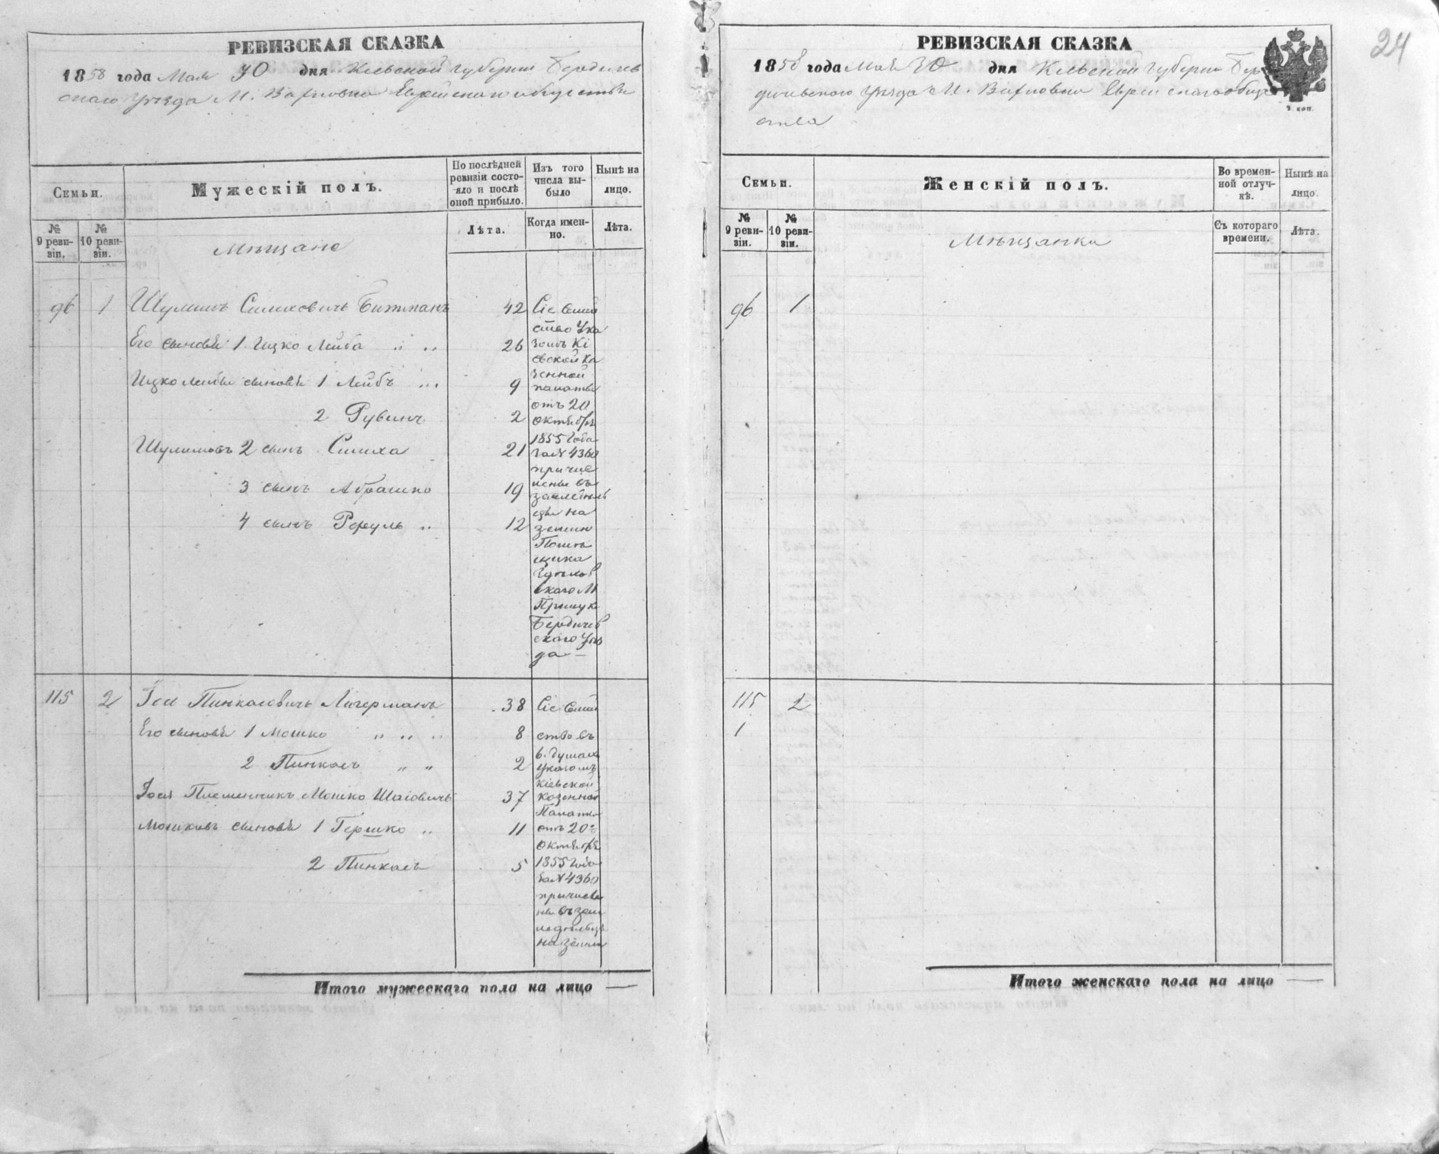 РЕВИЗСКАЯ СКАЗКА
1858 года Мая 30 дня Кіевской губерніи Бердичев
скаго Уѣзда М. Еврейскаго общества
Семьи.
Мужескій полъ.
По послѣдней ревизіи состояло и послѣ оной прибыло.
Изъ того числа выбыло
Нынѣ на лицо.
№ 9 ревизіи.
№ 10 ревизіи.
Лѣта.
Когда именно.
Лѣта.
Мѣщане
96 1 Шулимъ Симховичъ 42
Его сыновья 1 Ицко Лейба " " 26
Ицко Лейбы сыновья 1 Лейбъ " 9
2 Рувинъ 2
Шулимовъ 2 сынъ Симха 21
3 сынъ Абрашко 19
4 сынъ " 12
Сіе Семей
ство Ука
зомъ Кі
евской Ка
зенной
палаты
отъ 20
Октября
1855 года
за № 4360
причис
лены въ
земледѣль
цы на
земли
Помѣ
щика
скаго М
Бердичев
скаго Уѣз
да —
115 2 Іось Пинкасовичъ Лихерманъ 38
Его сыновья 1 Мошко " " " 8
2 Пинкасъ " " 2
Іося Племенникъ Мошко Шаевичъ 37
Мошковъ сыновья 1 Гершко " 11
2 Пинкасъ 5
Сіе Семей
ство въ
Указомъ
Кіевской
Казенной
Палаты
отъ 20
Октября
1855 года
за № 4360
причисле
ны въ зем
ледѣльцы
на земли
Итого мужескаго пола на лицо —
24
РЕВИЗСКАЯ СКАЗКА
1858 года Мая 30 дня Кіевской губерніи Бер
дичевскаго Уѣзда М. Еврейскаго общ
ества
2 коп.
Семьи.
Женскій полъ.
Во временной отлучкѣ.
Нынѣ на лицо.
№ 9 ревизіи.
№ 10 ревизіи.
Съ котораго времени.
Лѣта.
Мѣщанки
96 1
115 2
1
Итого женскаго пола на лицо —